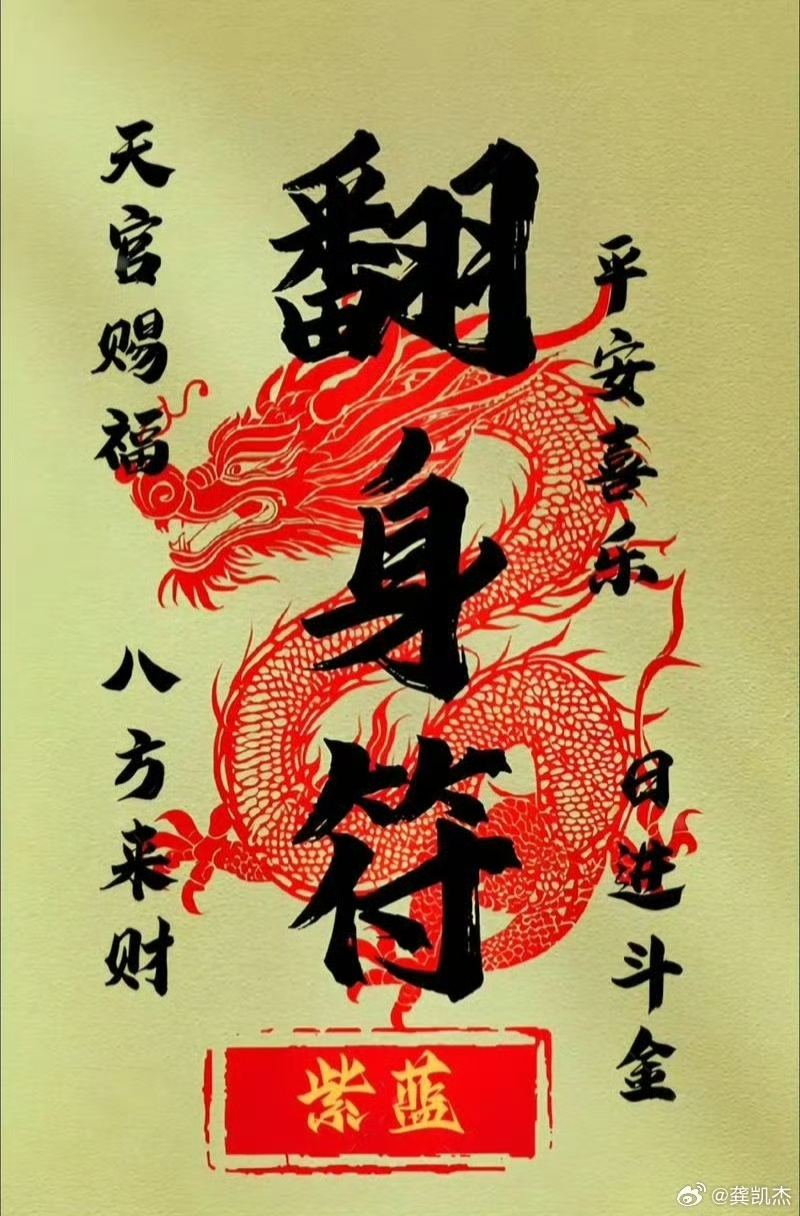 翻身符
天官赐福
八方来财
平安喜乐
日进斗金
紫蓝
@龚凯杰